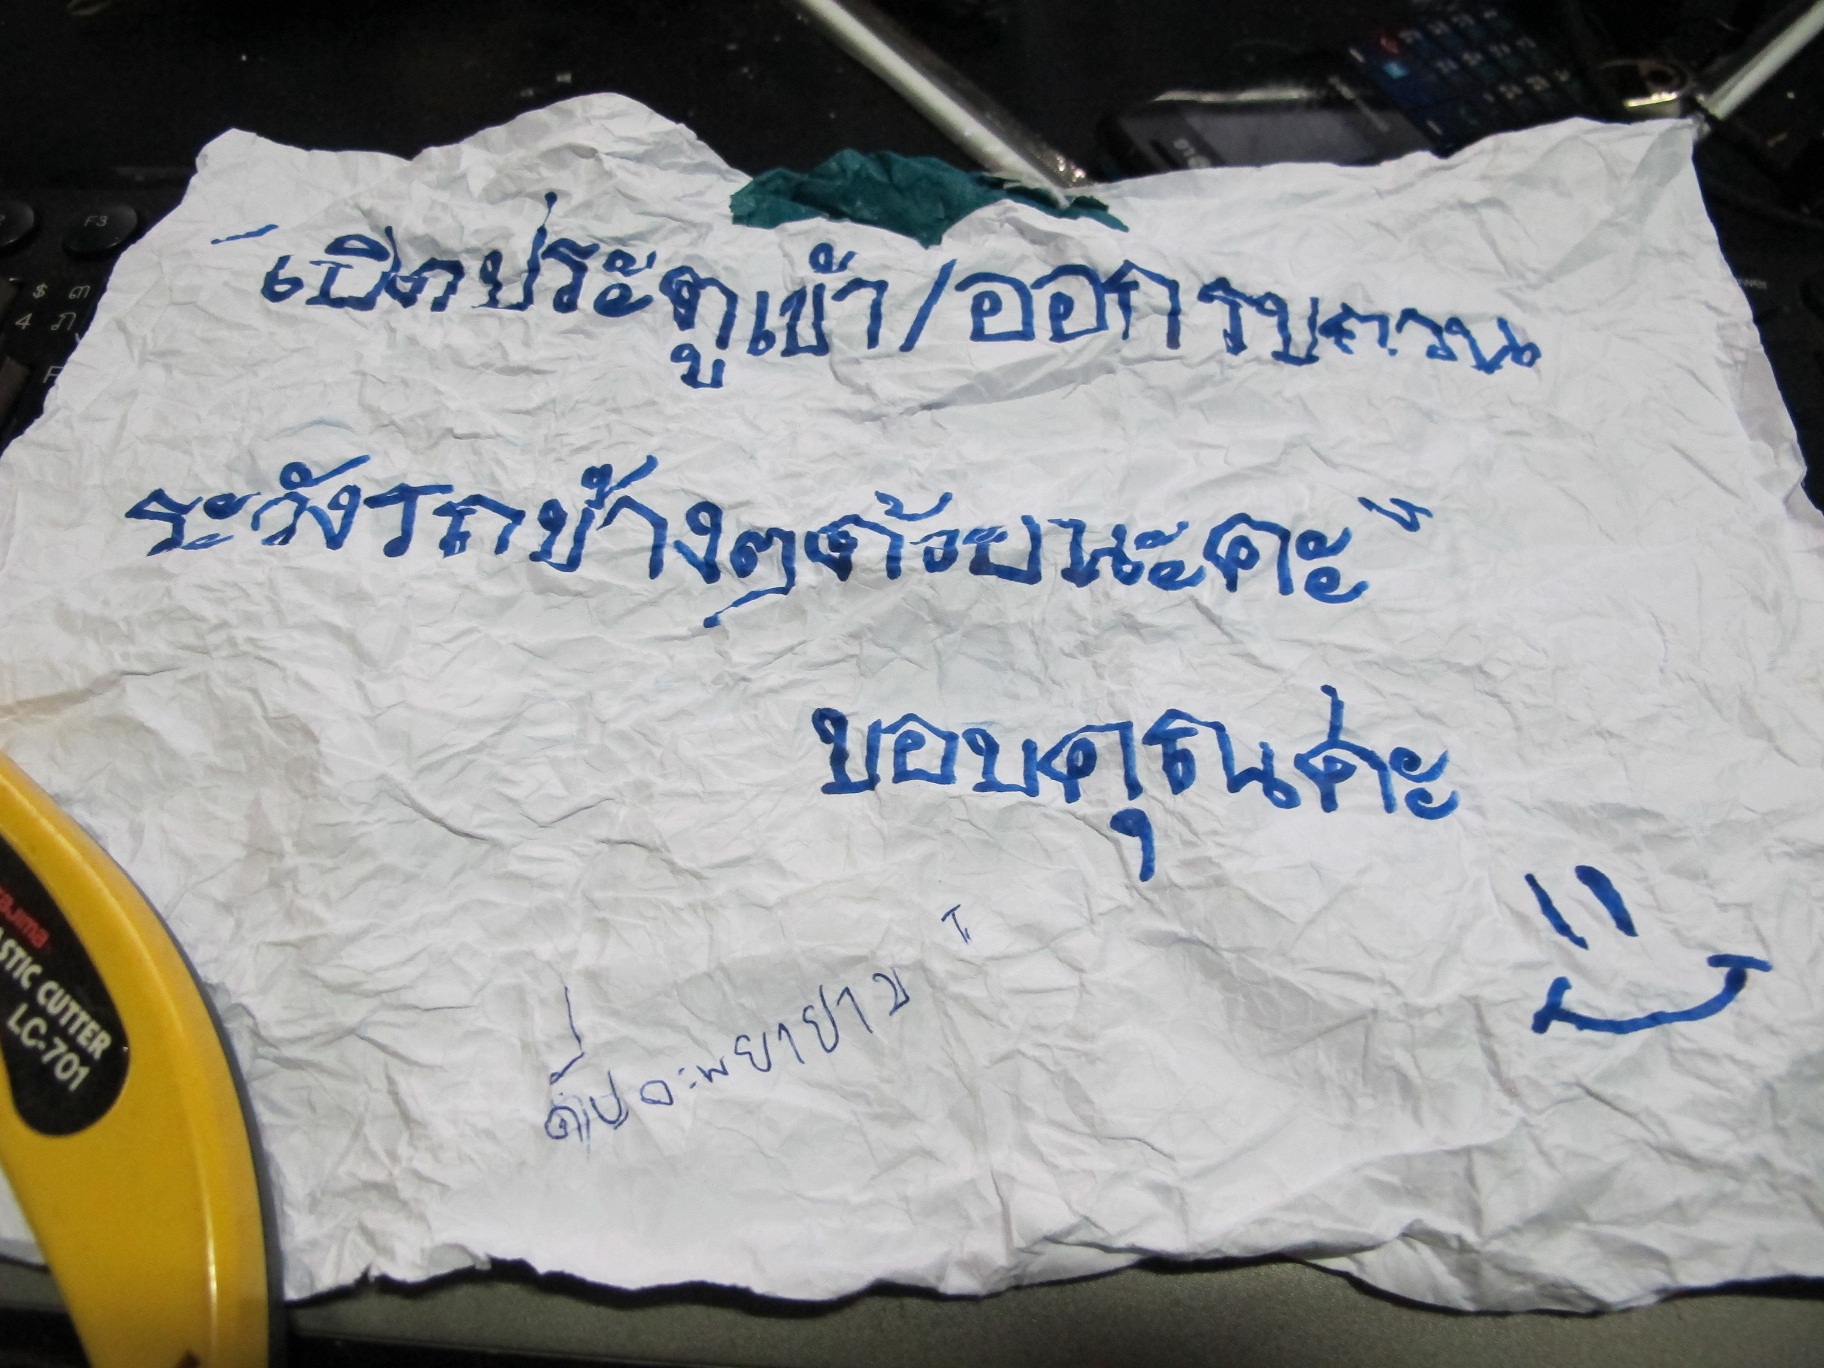 F3
$ ๓
4 ภ
"เปิดประตูเข้า/ออก รบกวน
ระวังรถข้างๆด้วยนะคะ"
ขอบคุณค่ะ
PLASTIC CUTTER
LC-701